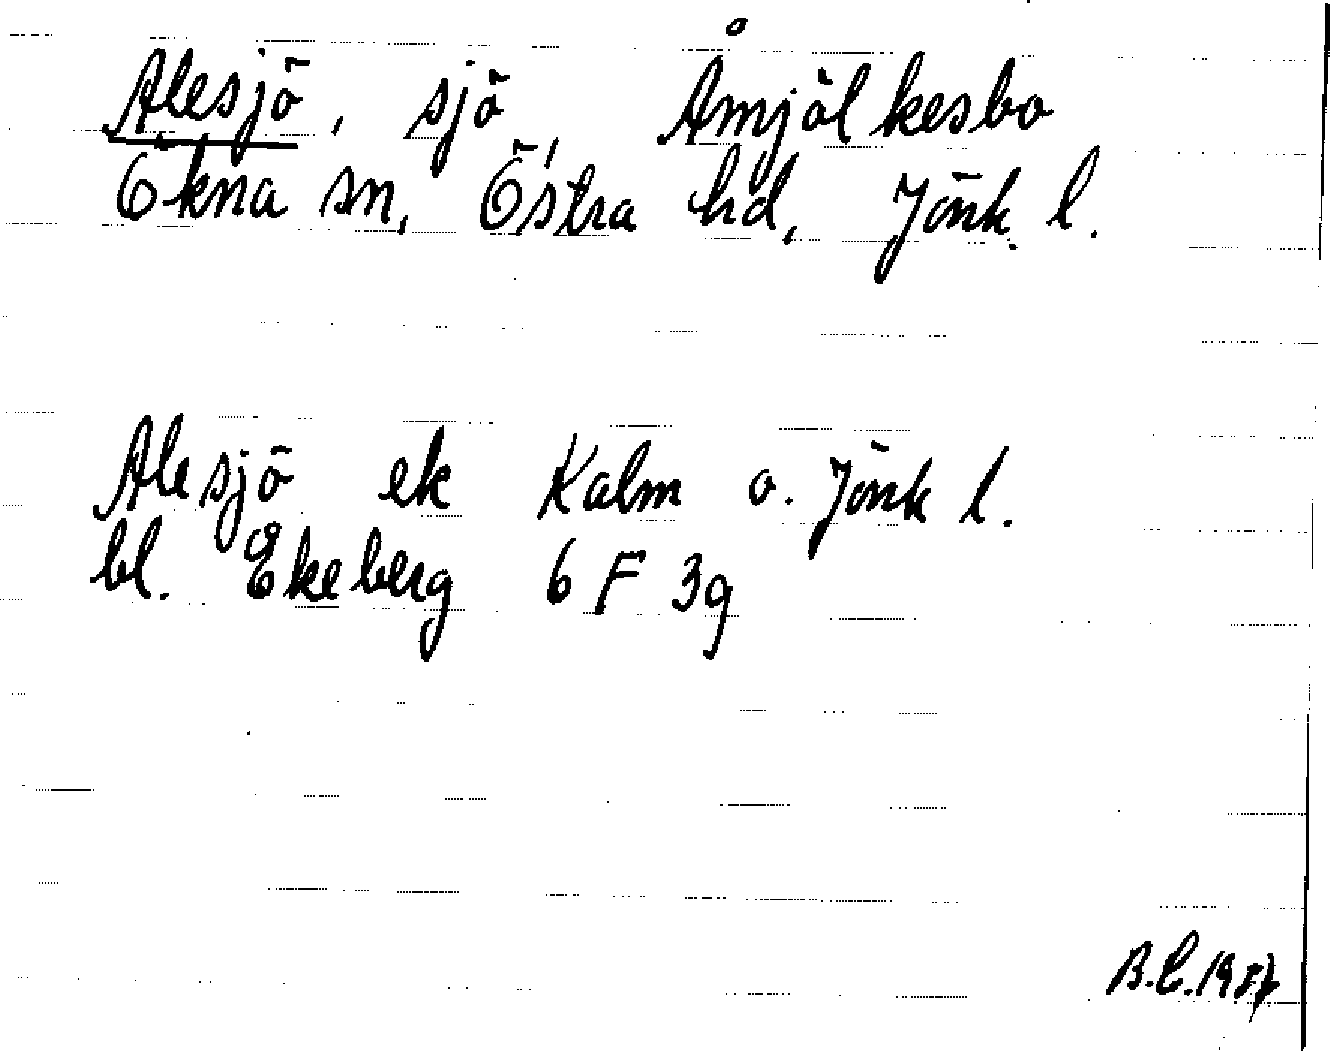 Alesjö, sjö, Åmjölkesbo
Ökna sn, Östra hd, Jönk. l.
Alesjö ek Kalm o. Jönk l.
bl. Ekeberg 6 F 3g
B.E.